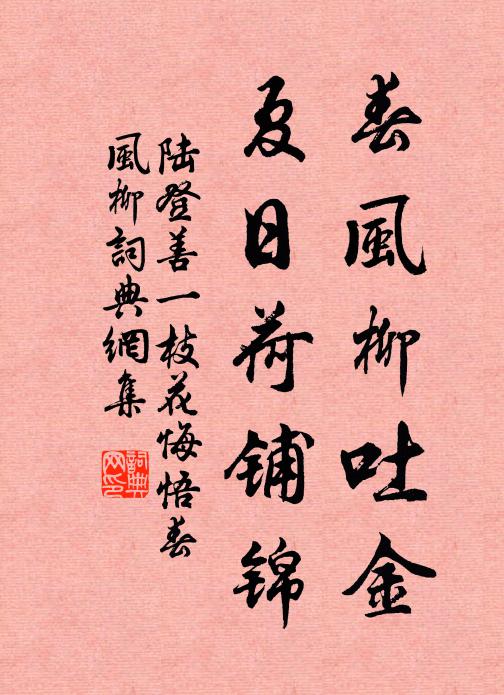 春風柳吐金
夏日荷铺锦
陆登善一枝花悔悟春
風柳詞典網集
詞典网印